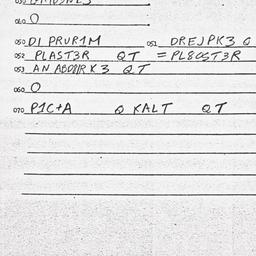 040 O
050 DI PRUR1M 051 DREJPK3 O
052 PLAST3R QT = PL8OST3R
053 AN ABD8IR K3 QT
060 O
070 P1C+A Q KALT QT